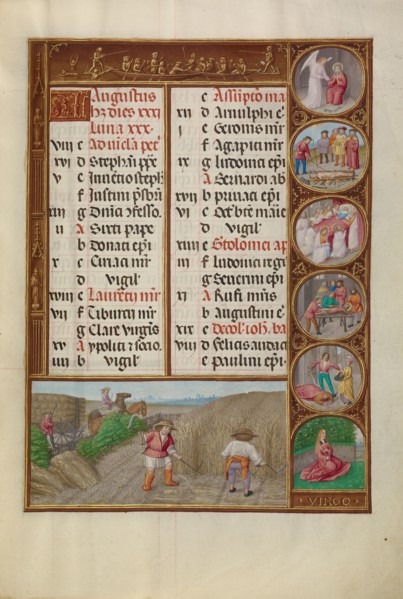 Augustus
hz dies xxxi
Luna xxx.
viii c Ad vicla pet
xvi d Stephani ppe
v e Inventio steph
f Justini psbri
xiii g Dnici ofesso.
ii A Sixti pape
b Donati epi
x c Ciriaci mr
d vigil
xviii e Laurecii mr
vii f Tiburcii mr
g Clare virgis
xv A Ypoliti z socio.
iiii b vigil
c Assupto ma
xii d Arnulphi e
i e mr
f Agapiti mr
ix g ludovici epi
A Bernardi ab
xvii b privati epi
vi c Oct bte marie
d vigil
xiiii e Ptolomei ap
iii f ludovici regis
g Severini epi
xi A Rufi
b Augustini e
xix c Decol. ioh. ba
viii d felicis audac
e Paulini epi.
VIRGO